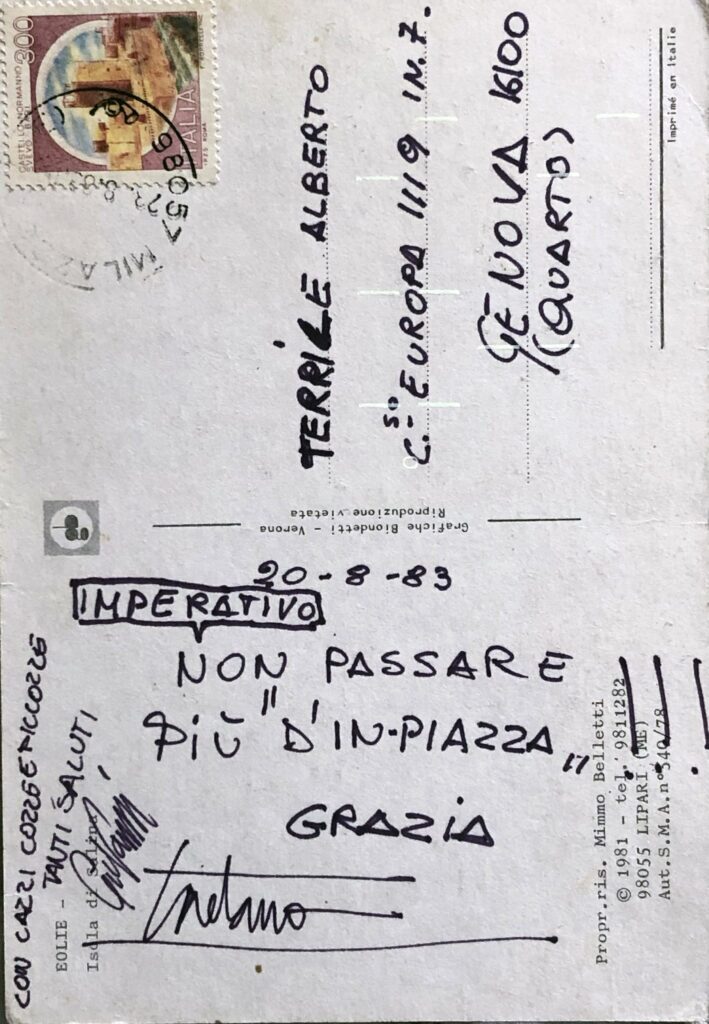 300
CASTELLO NORMANNO
ITALIA
98057
MILA
20-8-83
IMPERATIVO
NON PASSARE
PIÙ "D'IN-PIAZZA"
GRAZIA
!!!
Gaetano
CON CAZZI COZZE E PICCOZZE
TANTI SALUTI
EOLIE -
Isola di Salina
Propr.ris. Mimmo Belletti
© 1981 - tel. 9811282
98055 LIPARI (ME)
Aut.S.M.A.n°340/78
Grafiche Biondetti - Verona
Riproduzione vietata
TERRILE ALBERTO
C.SO EUROPA 1119 IN.7.
GENOVA 16100
(QUARTO)
Imprimé en Italie